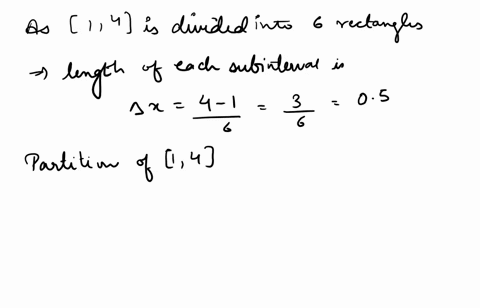 As [1,4] is divided into 6 rectangles
⇒ length of each subinterval is
Δx = 4-1/6 = 3/6 = 0.5
Partition of [1,4]